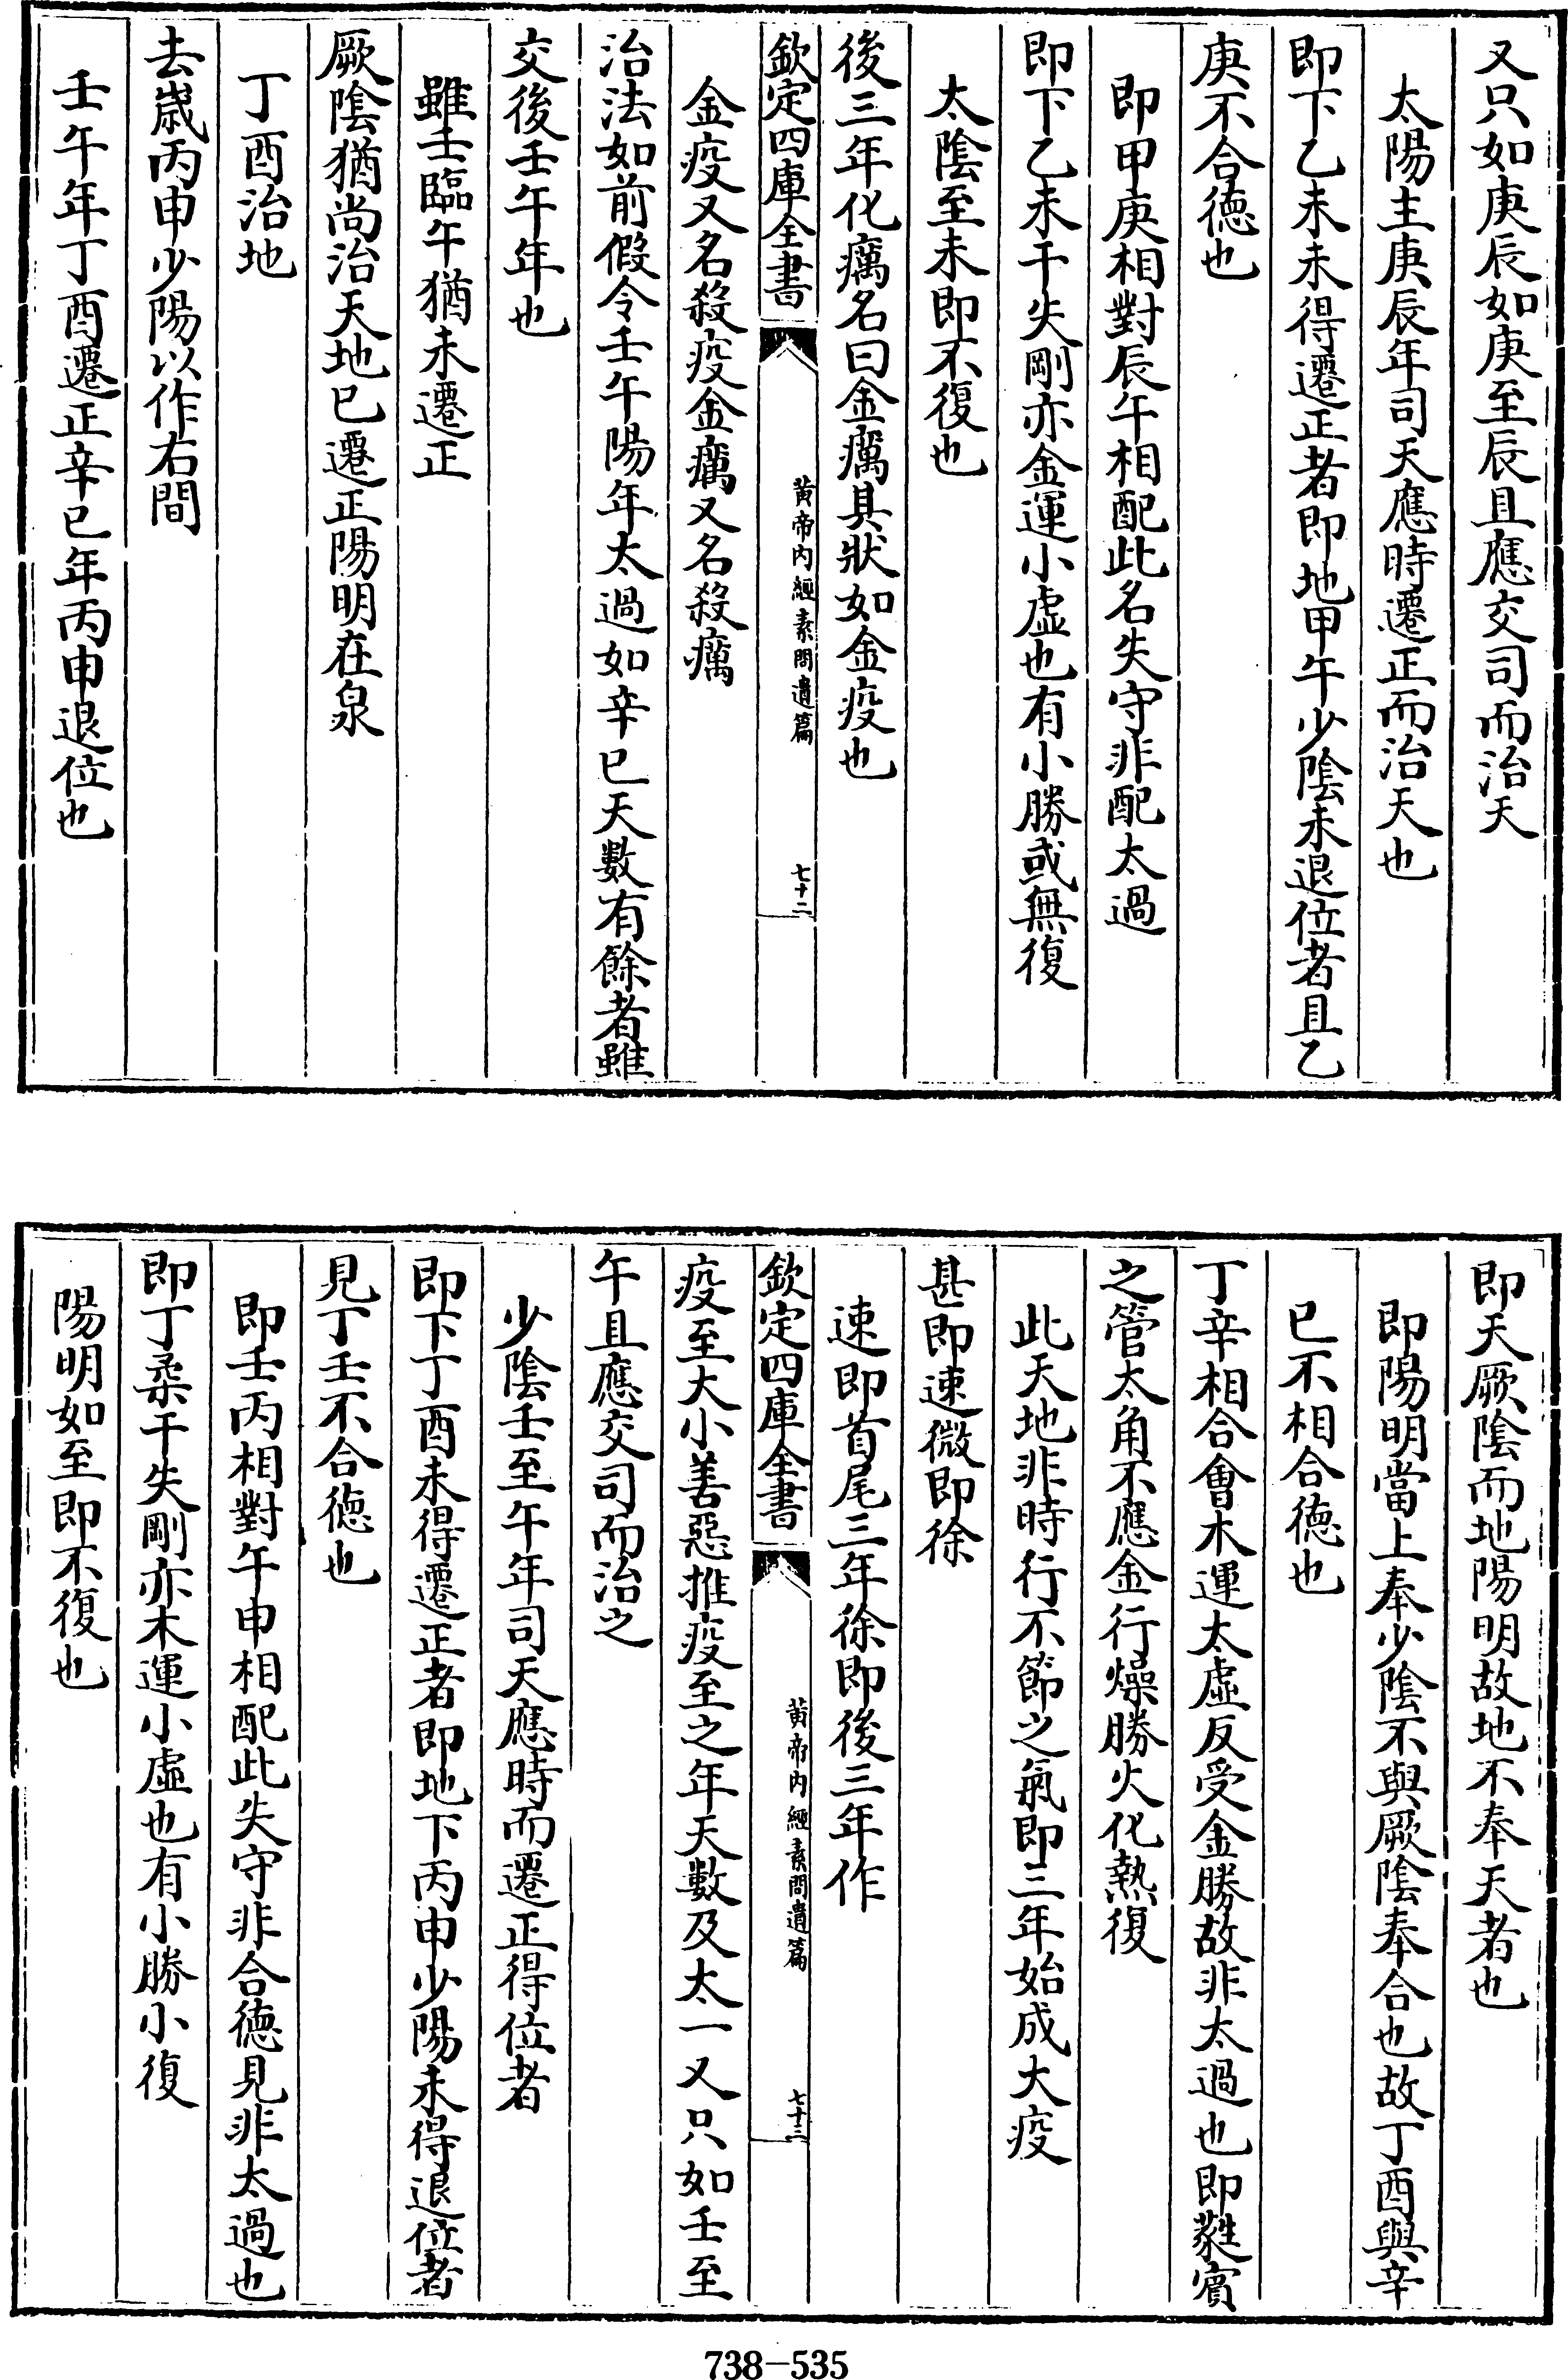 又只如庚辰如庚至辰且應交司而治天
太陽主庚辰年司天應時遷正而治天也
即下乙未未得遷正者即地甲午少隂未退位者且乙
庚不合德也
即甲庚相對辰午相配此名失守非配太過
即下乙未干失剛亦金運小虛也有小勝或無復
太隂至未即不復也
後三年化癘名曰金癘其狀如金疫也
欽定四庫全書
黄帝內經素問遺篇
七十二
金疫又名殺疫金癘又名殺癘
治法如前假令壬午陽年太過如辛巳天數有餘者雖
交後壬午年也
雖壬臨午猶未遷正
厥隂猶尚治天地已遷正陽明在泉
丁酉治地
去歲丙申少陽以作右間
壬午年丁酉遷正辛巳年丙申退位也
即天厥隂而地陽明故地不奉天者也
即陽明當上奉少隂不與厥隂奉合也故丁酉與辛
巳不相合德也
丁辛相合會木運太虛反受金勝故非太過也即蕤賓
之管太角不應金行燥勝火化熱復
此天地非時行不節之氣即三年始成大疫
甚即速微即徐
速即首尾三年徐即後三年作
欽定四庫全書
黄帝內經素問遺篇
七十三
疫至大小善惡推疫至之年天數及太一又只如壬至
午且應交司而治之
少隂壬至午年司天應時而遷正得位者
即下丁酉未得遷正者即地下丙申少陽未得退位者
見丁壬不合德也
即壬丙相對午申相配此失守非合德見非太過也
即丁柔干失剛亦木運小虛也有小勝小復
陽明如至即不復也
738-535